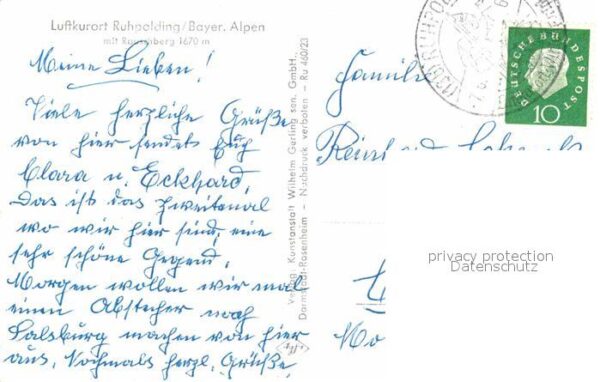 Luftkurort Ruhpolding/Bayer. Alpen
mit Rauschberg 1670 m
Meine Lieben!
Viele herzliche Grüße
von hier sendet Euch
Clara u. Eckhard.
Das ist das zweitemal
wo wir hier sind, eine
sehr schöne Gegend.
Morgen wollen wir mal
einen Abstecher nach
Salsburg machen von hier
aus. Nochmals herzl. Grüße
Verlag: Kunstanstalt Wilhelm Gerling sen. GmbH.,
Darmstadt-Rosenheim – Nachdruck verboten – Ru 460/23
Familie
DEUTSCHE BUNDESPOST
10
privacy protection
Datenschutz